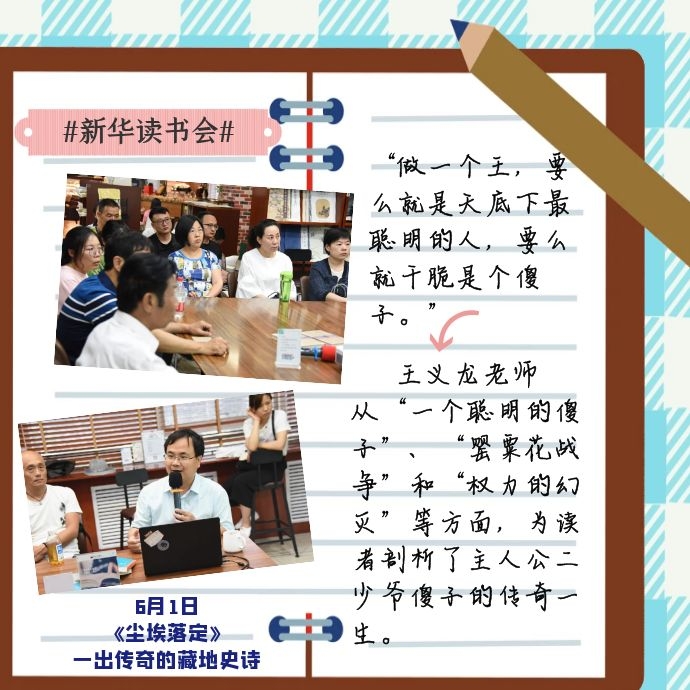 #新华读书会#
“做一个王，要
么就是天底下最
聪明的人，要么
就干脆是个傻
子。”
王义龙老师
从“一个聪明的傻
子”、“罂粟花战
争”和“权力的幻
灭”等方面，为读
者剖析了主人公二
少爷傻子的传奇一
生。
6月1日
《尘埃落定》
一出传奇的藏地史诗